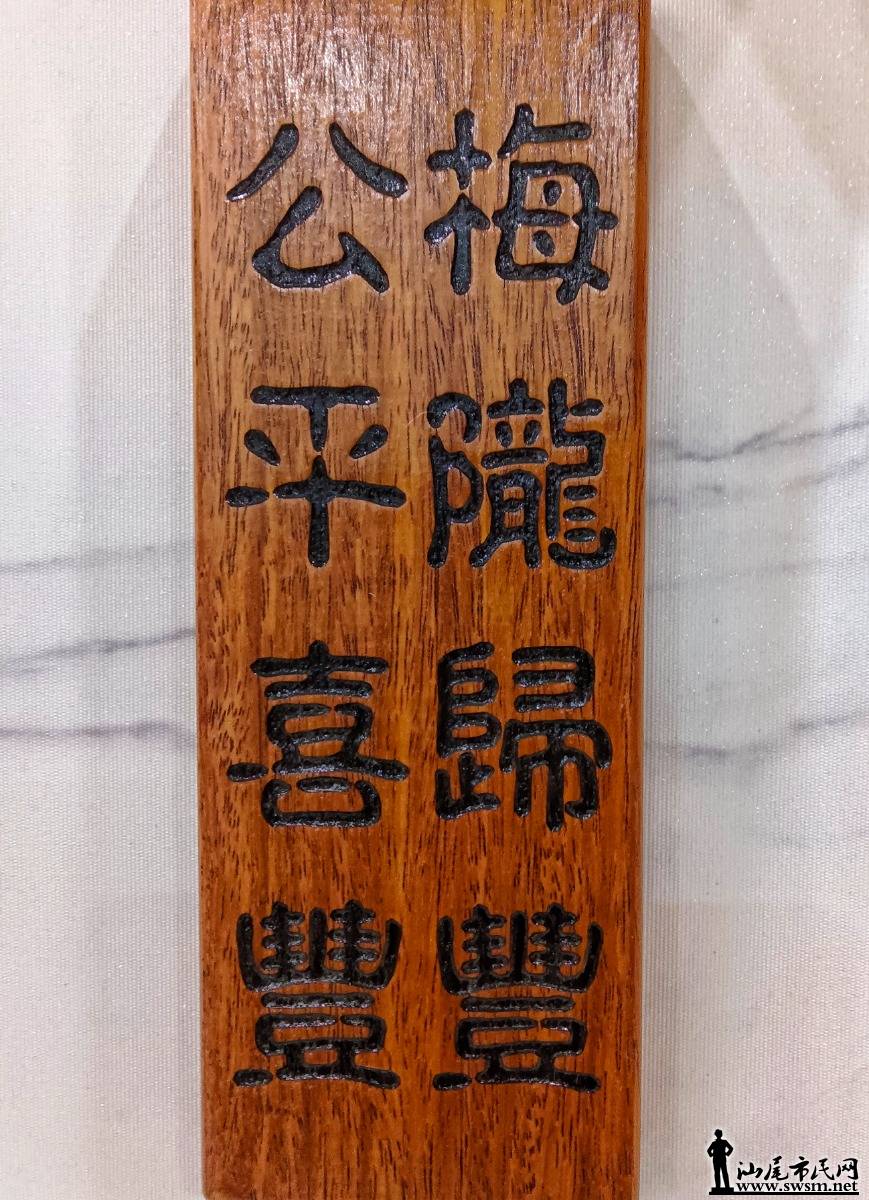 梅隴歸豐
公平喜豐
汕尾市民网
www.swsm.net